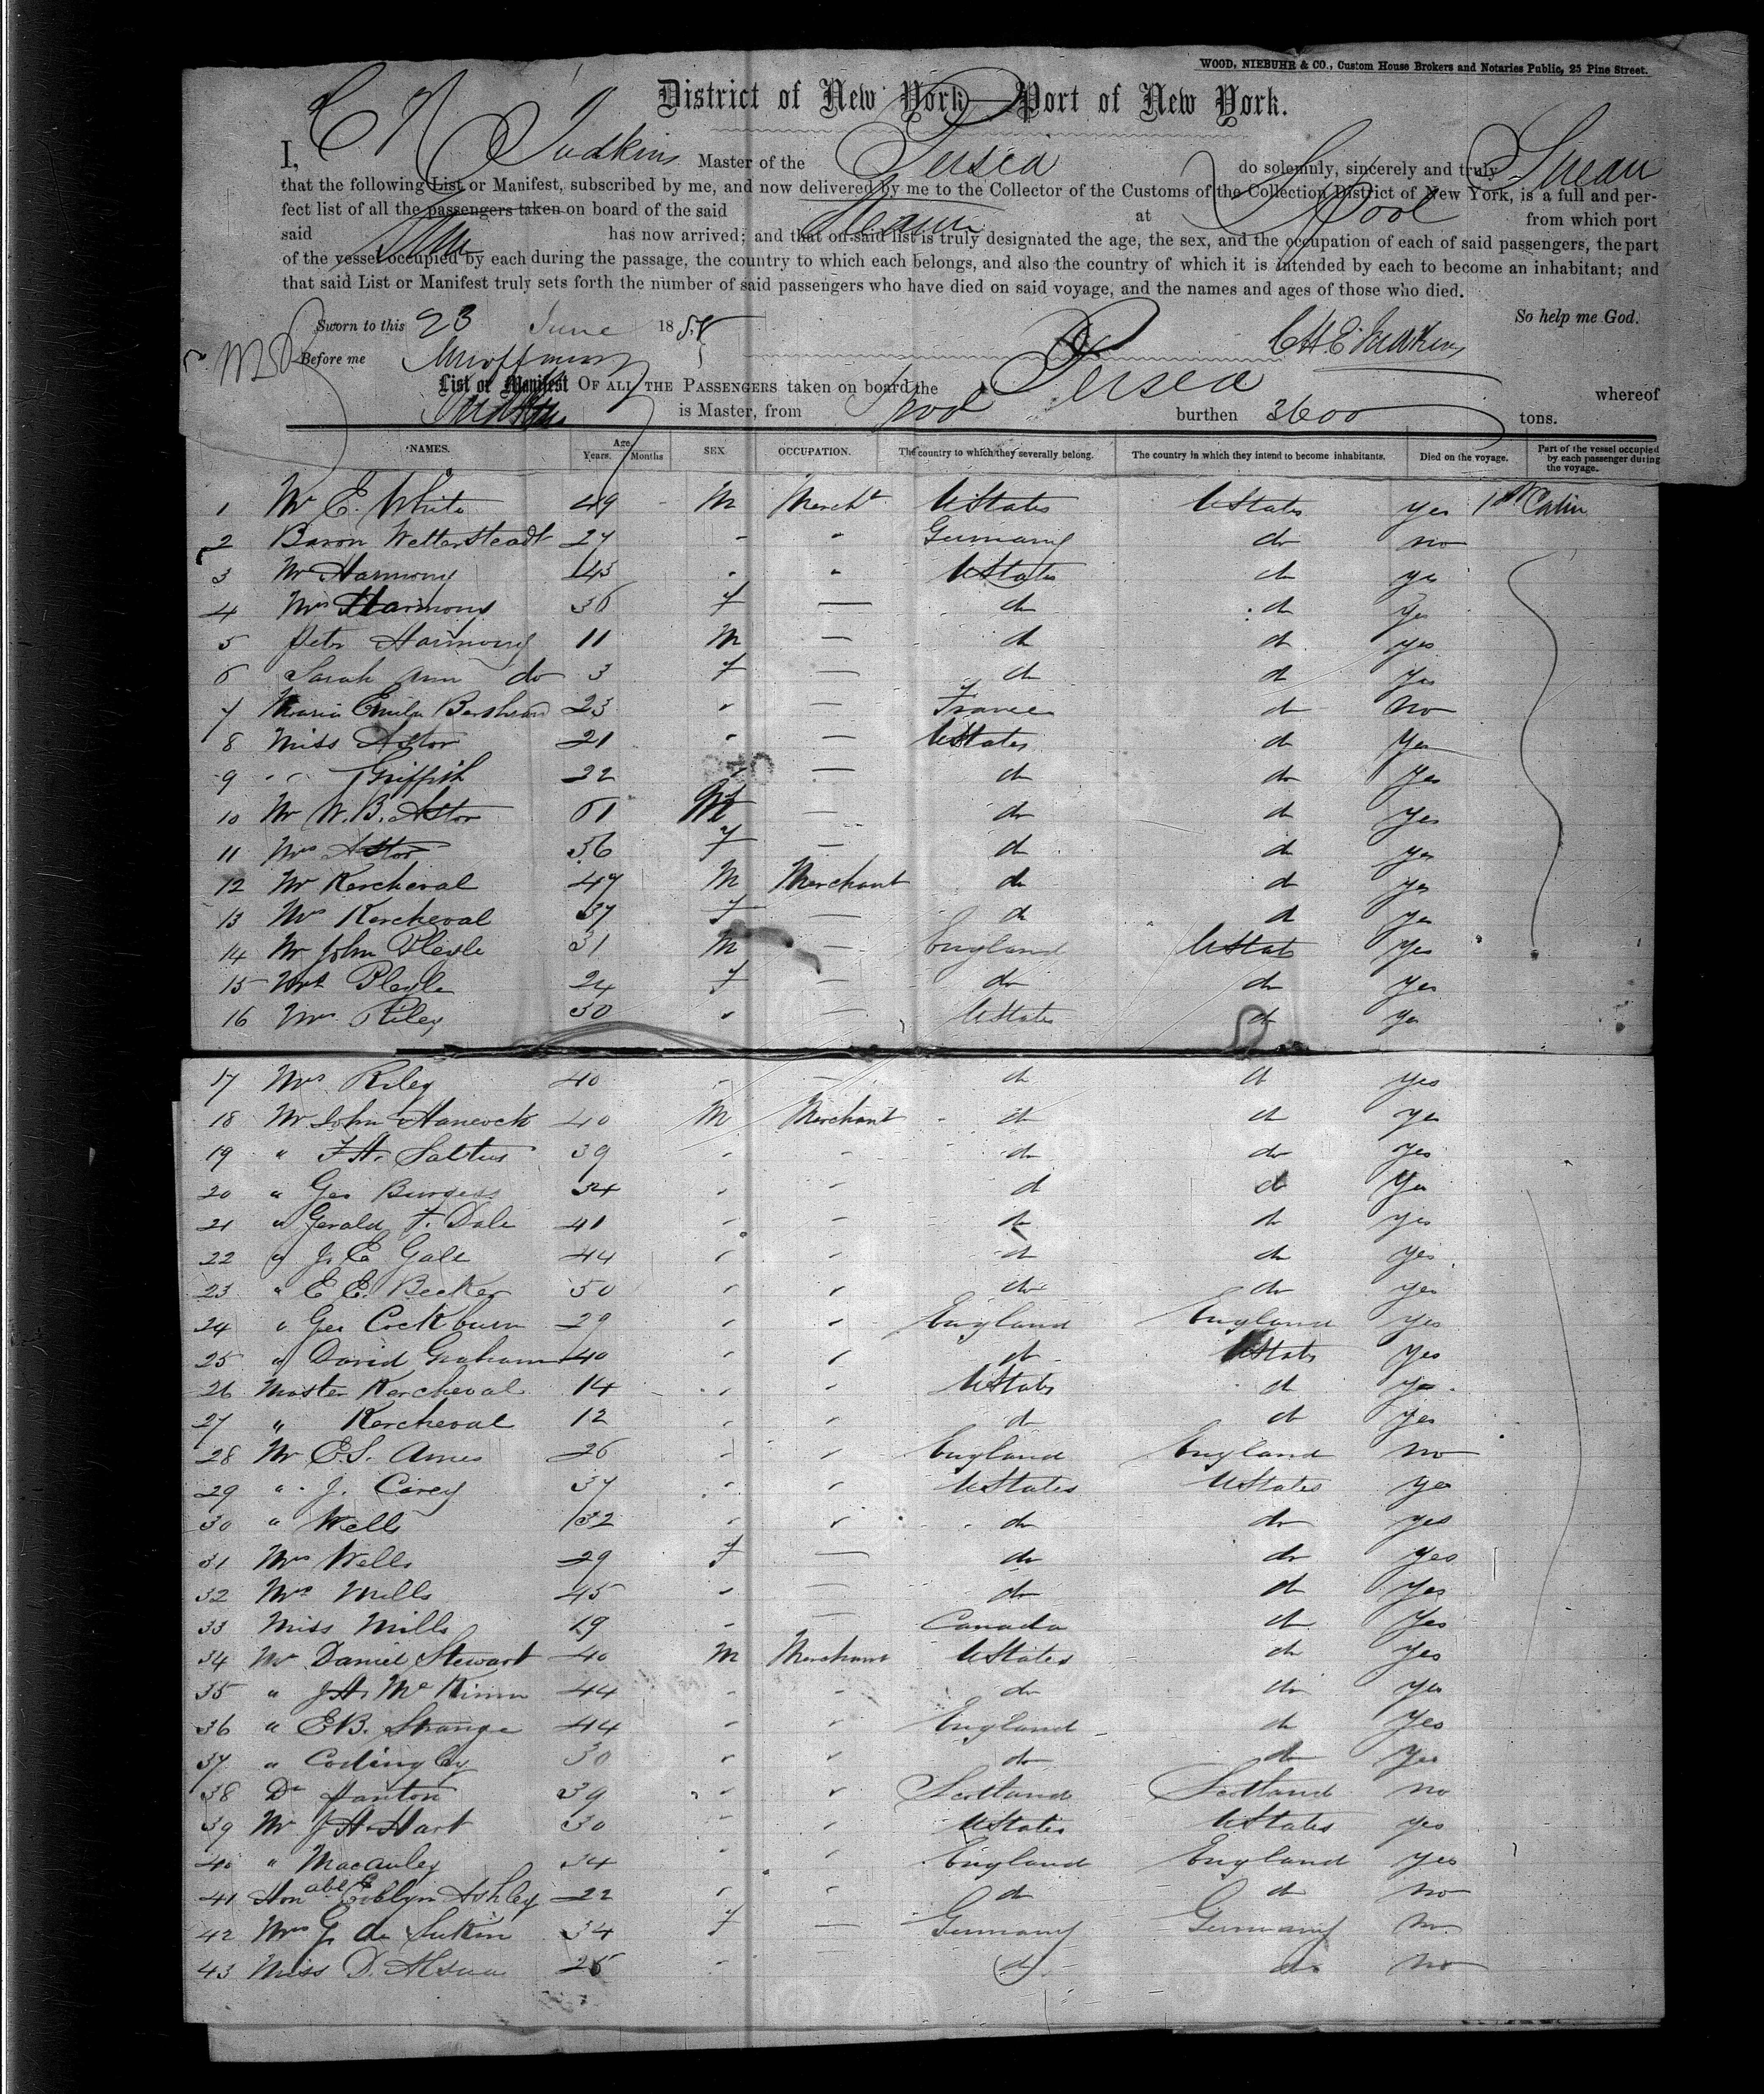 WOOD, NIEBUHR & CO., Custom House Brokers and Notaries Public, 25 Pine Street.
District of New York—Port of New York.
I, C H Judkins Master of the Persia do solemnly, sincerely and truly Swear
that the following List or Manifest, subscribed by me, and now delivered by me to the Collector of the Customs of the Collection District of New York, is a full and per-
fect list of all the passengers taken on board of the said Steamer at L'pool from which port
said has now arrived; and that on said list is truly designated the age, the sex, and the occupation of each of said passengers, the part
of the vessel occupied by each during the passage, the country to which each belongs, and also the country of which it is intended by each to become an inhabitant; and
that said List or Manifest truly sets forth the number of said passengers who have died on said voyage, and the names and ages of those who died.
Sworn to this 23 June 1858 So help me God.
Before me
List or Manifest OF ALL THE PASSENGERS taken on board the Persia whereof
Judkins is Master, from L'pool burthen 3600 tons.
NAMES. Age Years. Months SEX OCCUPATION. The country to which they severally belong. The country in which they intend to become inhabitants. Died on the voyage. Part of the vessel occupied by each passenger during the voyage.
1 Mr E. White 49 - M Mercht UStates UStates yes 1st Cabin
2 Baron Wettersteadt 27 " " Germany do no
3 Mr Harmony 43 " " UStates do yes
4 Mrs Harmony 36 f — do do yes
5 Peter Harmony 11 M — do do yes
6 Sarah Ann do 3 f — do do yes
7 Maria Emila 23 " — France do no
8 Miss Astor 21 " — UStates do yes
9 " Griffith 22 " — do do yes
10 Mr W. B. Astor 61 M — do do yes
11 Mrs Astor 56 f — do do yes
12 Mr Kercheval 47 M Merchant do do yes
13 Mrs Kercheval 37 f — do do yes
14 Mr John Pleyle 31 M — England UStates yes
15 Mrs Pleyle 24 f — do do yes
16 Mrs Riley 30 " — UStates do yes
17 Mrs Riley 40 " — do do yes
18 Mr John Hancock 40 M Merchant do do yes
19 " F.H. Saltus 39 " " do do yes
20 " Geo Burgess 34 " " do do yes
21 " Gerald F. Dale 41 " " do do yes
22 " J. E Gale 44 " " do do yes
23 " E E. Becker 50 " " do do yes
24 " Geo Cockburn 29 " " England England yes
25 " David Graham 40 " " do UStates yes
26 Master Kercheval 14 " " UStates do yes
27 " Kercheval 12 " " do do yes
28 Mr E.S. Ames 26 " " England England no
29 " J. Carey 37 " " UStates UStates yes
30 " Wells 32 " " do do yes
31 Mrs Wells 29 f — do do yes
32 Mrs Mills 45 " — do do yes
33 Miss Mills 19 " — Canada do yes
34 Mr Daniel Stewart 40 M Merchant UStates do yes
35 " J.H. McKinn 44 " " do do yes
36 " E.B. Strange 44 " " England do yes
37 " Codingley 30 " " do do yes
38 Dr 39 " " Scotland Scotland no
39 Mr J H Hart 30 " " UStates UStates yes
40 " Macauley 34 " " England England yes
41 Honable Evelyn Ashley 22 " " do do no
42 Mrs G. de 34 f — Germany Germany no
43 Miss D. 25 " — do do no